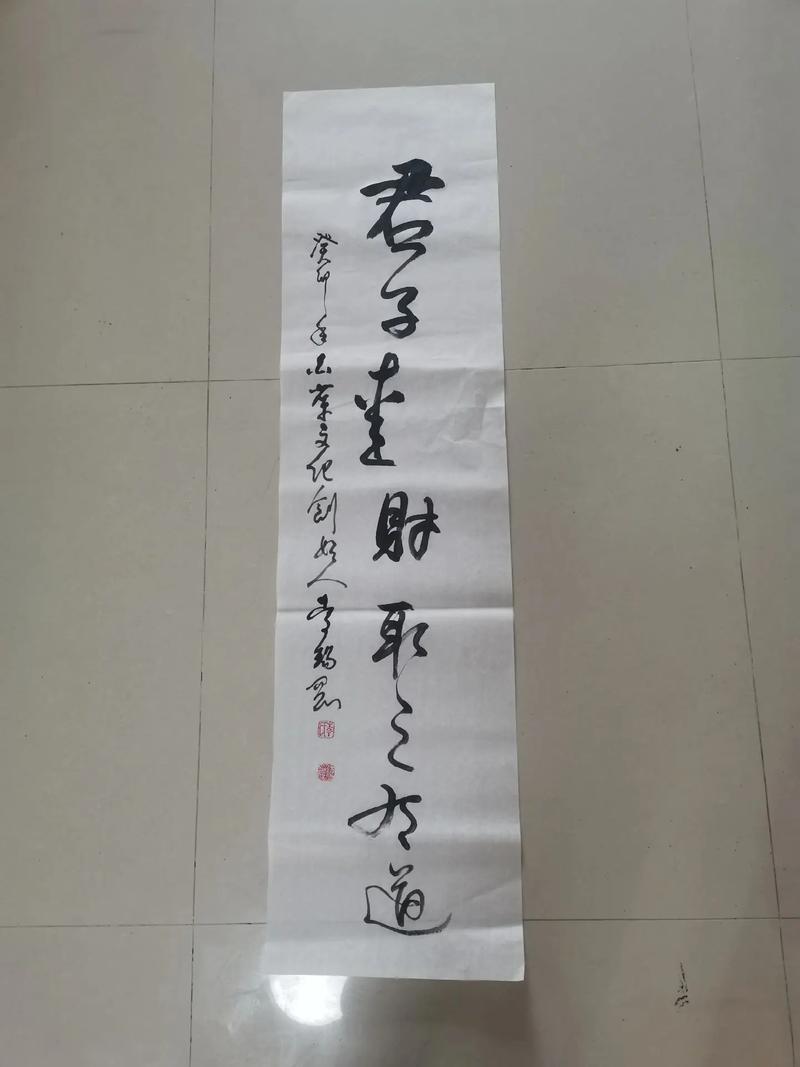 君子爱财取之有道
癸卯年 文化创始人李